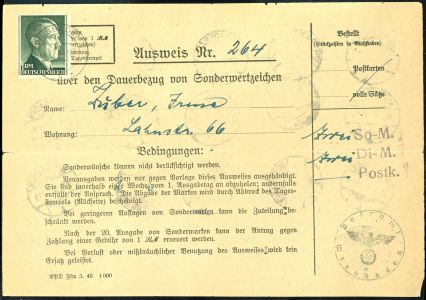 RM
DEUTSCHES REICH
Ausweis Nr. 264
über den Dauerbezug von Sonderwertzeichen
Name: Zuber, Irma
Wohnung: Lahnstr. 66
Bedingungen:
Sonderwünsche können nicht berücksichtigt werden.
Neuausgaben werden nur gegen Vorlage dieses Ausweises ausgehändigt.
Sie sind innerhalb eine Woche vom 1. Ausgabetag an abzuholen; anderenfalls
entfällt der Anspruch. Die Abgabe der Marken wird durch Abdruck des Tages-
stempels (Rückseite) bescheinigt.
Bei geringeren Auflagen von Sondermarken kann die Zuteilung be-
schränkt werden.
Nach der 20. Ausgabe von Sondermarken kann der Antrag gegen
Zahlung einer Gebühr von 1 RM erneuert werden.
Bei Verlust oder mißbräuchlicher Benutzung des Ausweises wird kein
Ersatz geleistet.
3. 43 4000
Bestellt
(Stückzahlen in Buchstaben)
Postkarten
volle Sätze
So-M.
Di-M.
Postk.
Wiesbaden